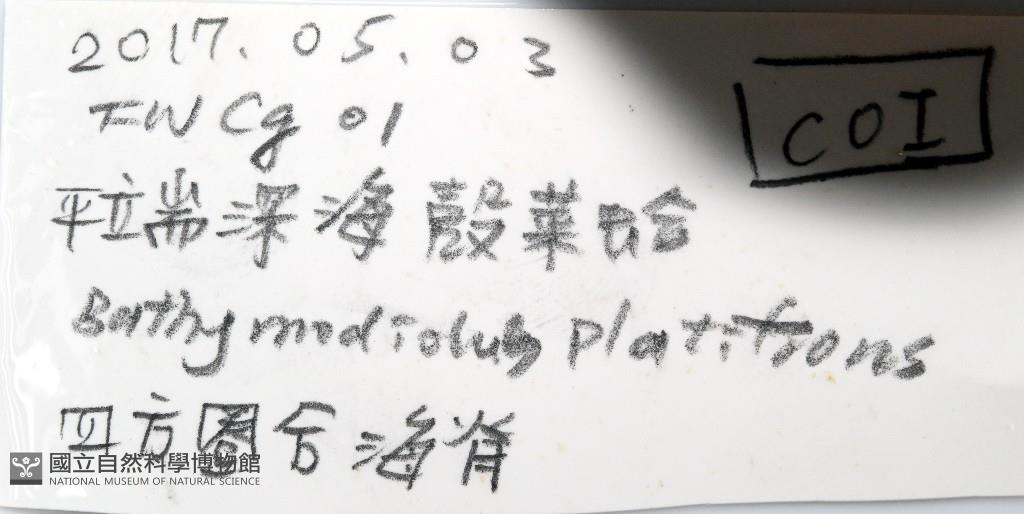 2017.05.03
COI
TWCg 01
平端深海殼菜蛤
Bathymodiolus platifrons
四方圈合海脊
國立自然科學博物館
NATIONAL MUSEUM OF NATURAL SCIENCE